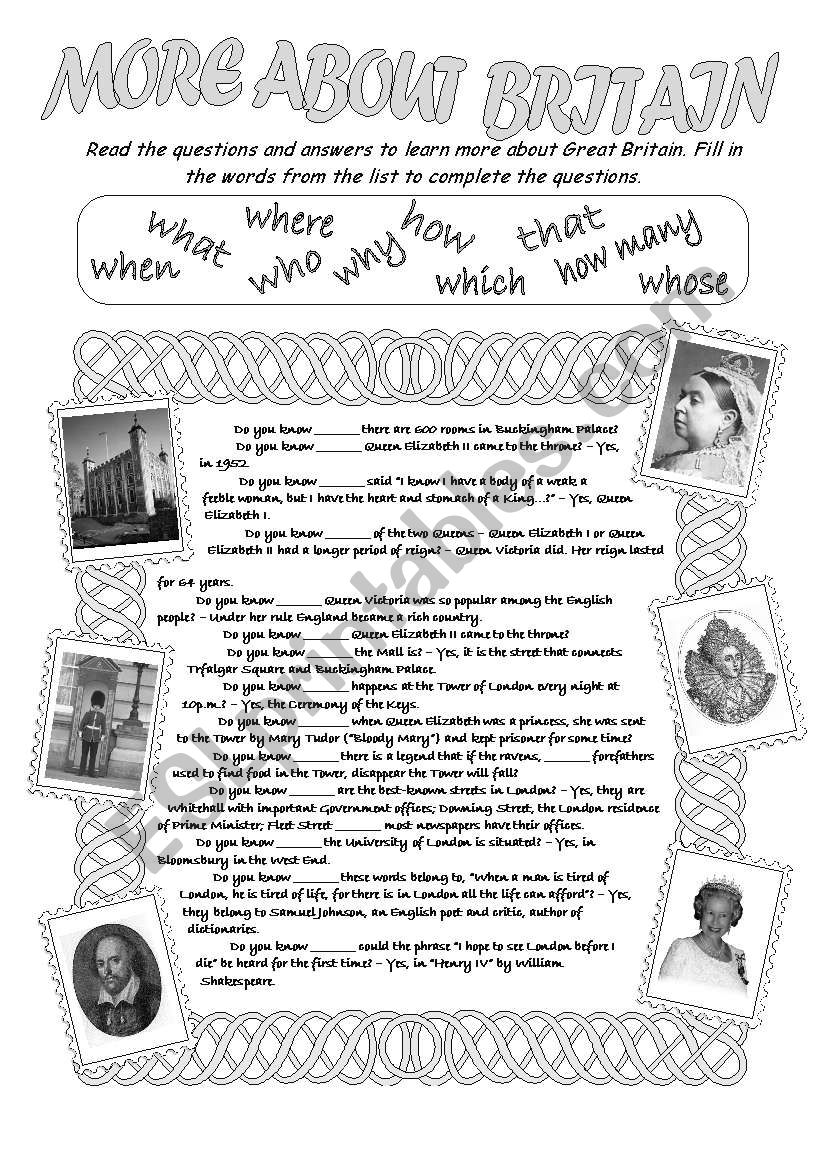 MORE ABOUT BRITAIN
Read the questions and answers to learn more about Great Britain. Fill in
the words from the list to complete the questions.
when what where who why how which that how many whose
Do you know _______ there are 600 rooms in Buckingham Palace?
Do you know _______ Queen Elizabeth II came to the throne? – Yes,
in 1952.
Do you know _______ said "I know I have a body of a weak a
feeble woman, but I have the heart and stomach of a King...?" – Yes, Queen
Elizabeth I.
Do you know _______ of the two Queens – Queen Elizabeth I or Queen
Elizabeth II had a longer period of reign? – Queen Victoria did. Her reign lasted
for 64 years.
Do you know _______ Queen Victoria was so popular among the English
people? – Under her rule England became a rich country.
Do you know _______ Queen Elizabeth II came to the throne?
Do you know _______ the Mall is? – Yes, it is the street that connects
Trfalgar Square and Buckingham Palace.
Do you know _______ happens at the Tower of London every night at
10p.m.? – Yes, the Ceremony of the Keys.
Do you know ________ when Queen Elizabeth was a princess, she was sent
to the Tower by Mary Tudor ("Bloody Mary") and kept prisoner for some time?
Do you know _______ there is a legend that if the ravens, _______ forefathers
used to find food in the Tower, disappear the Tower will fall?
Do you know _______ are the best-known streets in London? – Yes, they are
Whitehall with important Government offices; Downing Street, the London residence
of Prime Minister; Fleet Street _______ most newspapers have their offices.
Do you know _______ the University of London is situated? – Yes, in
Bloomsbury in the West End.
Do you know _______ these words belong to, "When a man is tired of
London, he is tired of life, for there is in London all the life can afford"? – Yes,
they belong to Samuel Johnson, an English poet and critic, author of
dictionaries.
Do you know _______ could the phrase "I hope to see London before I
die" be heard for the first time? – Yes, in "Henry IV" by William
Shakespeare.
ESLprintables.com